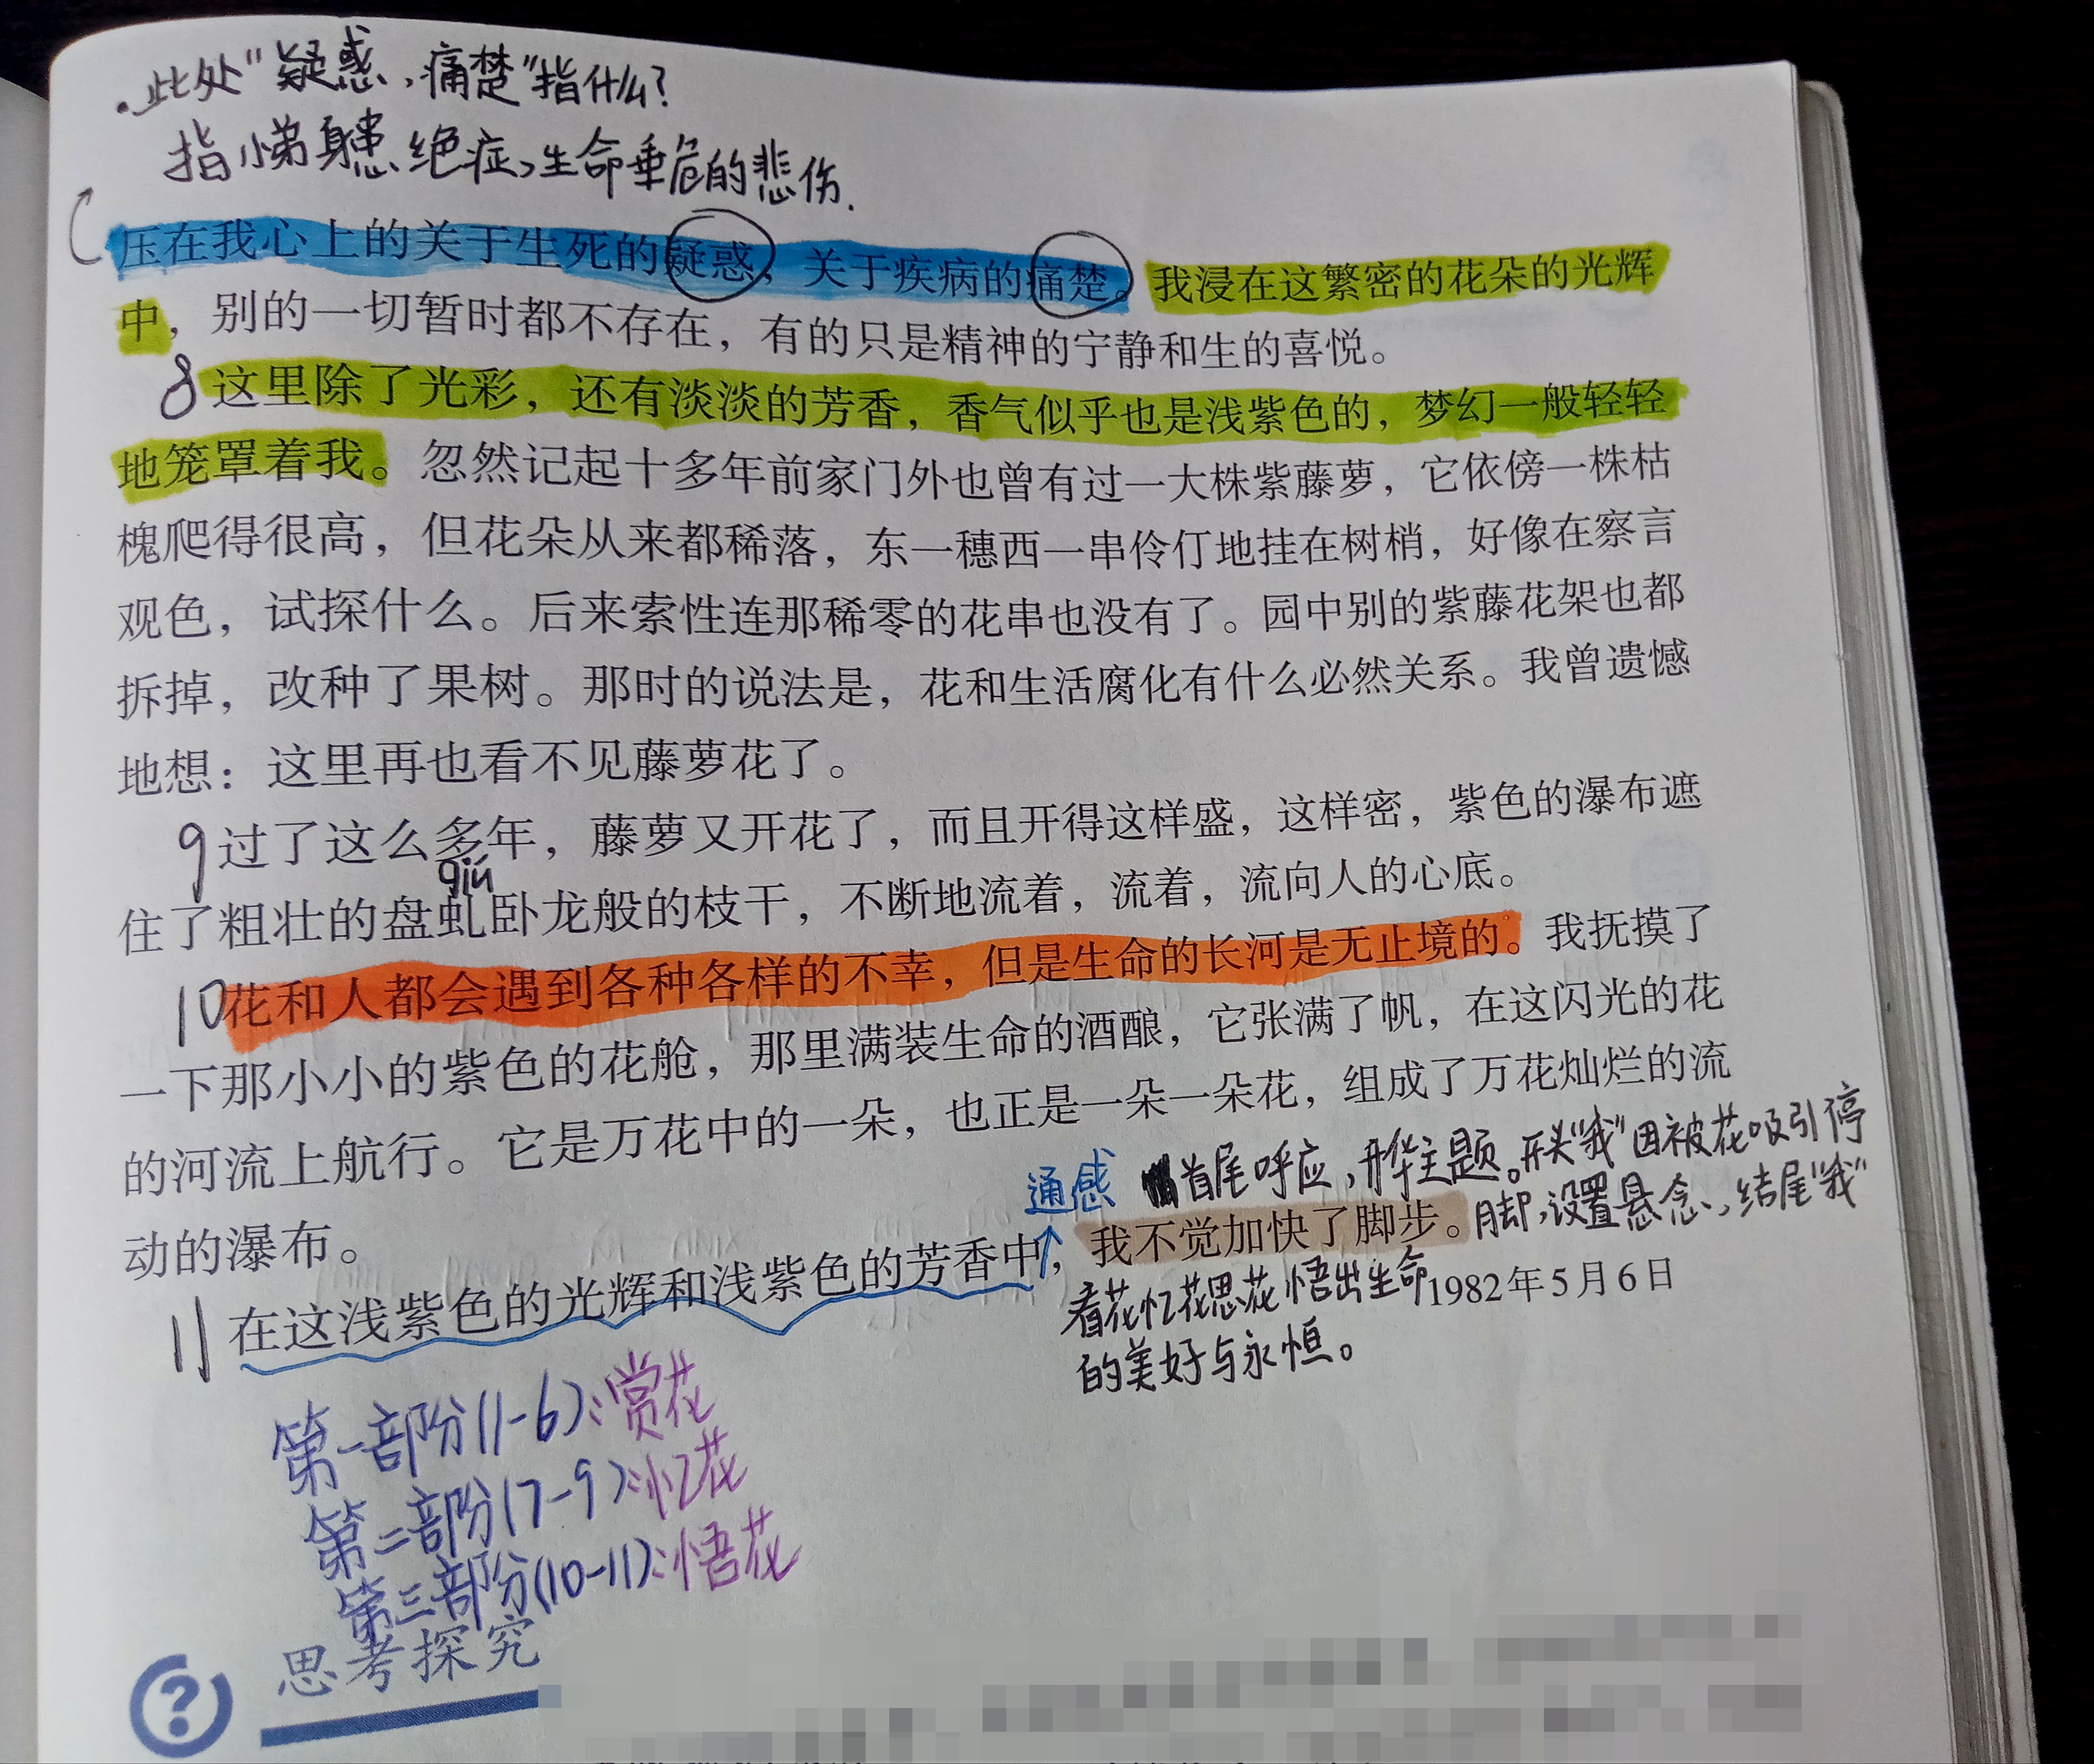 ·此处“疑惑,痛楚”指什么?
指小弟身患绝症,生命垂危的悲伤.
压在我心上的关于生死的疑惑，关于疾病的痛楚。我浸在这繁密的花朵的光辉
中，别的一切暂时都不存在，有的只是精神的宁静和生的喜悦。
8 这里除了光彩，还有淡淡的芳香，香气似乎也是浅紫色的，梦幻一般轻轻
地笼罩着我。忽然记起十多年前家门外也曾有过一大株紫藤萝，它依傍一株枯
槐爬得很高，但花朵从来都稀落，东一穗西一串伶仃地挂在树梢，好像在察言
观色，试探什么。后来索性连那稀零的花串也没有了。园中别的紫藤花架也都
拆掉，改种了果树。那时的说法是，花和生活腐化有什么必然关系。我曾遗憾
地想：这里再也看不见藤萝花了。
9 过了这么多年，藤萝又开花了，而且开得这样盛，这样密，紫色的瀑布遮
qiú
住了粗壮的盘虬卧龙般的枝干，不断地流着，流着，流向人的心底。
10 花和人都会遇到各种各样的不幸，但是生命的长河是无止境的。我抚摸了
一下那小小的紫色的花舱，那里满装生命的酒酿，它张满了帆，在这闪光的花
的河流上航行。它是万花中的一朵，也正是一朵一朵花，组成了万花灿烂的流
动的瀑布。
通感
首尾呼应,升华主题。开头“我”因被花吸引停
脚,设置悬念,结尾“我”
看花忆花思花悟出生命
的美好与永恒。
11 在这浅紫色的光辉和浅紫色的芳香中，我不觉加快了脚步。
1982年5月6日
第一部份(1-6):赏花
第二部份(7-9):忆花
第三部份(10-11):悟花
思考探究